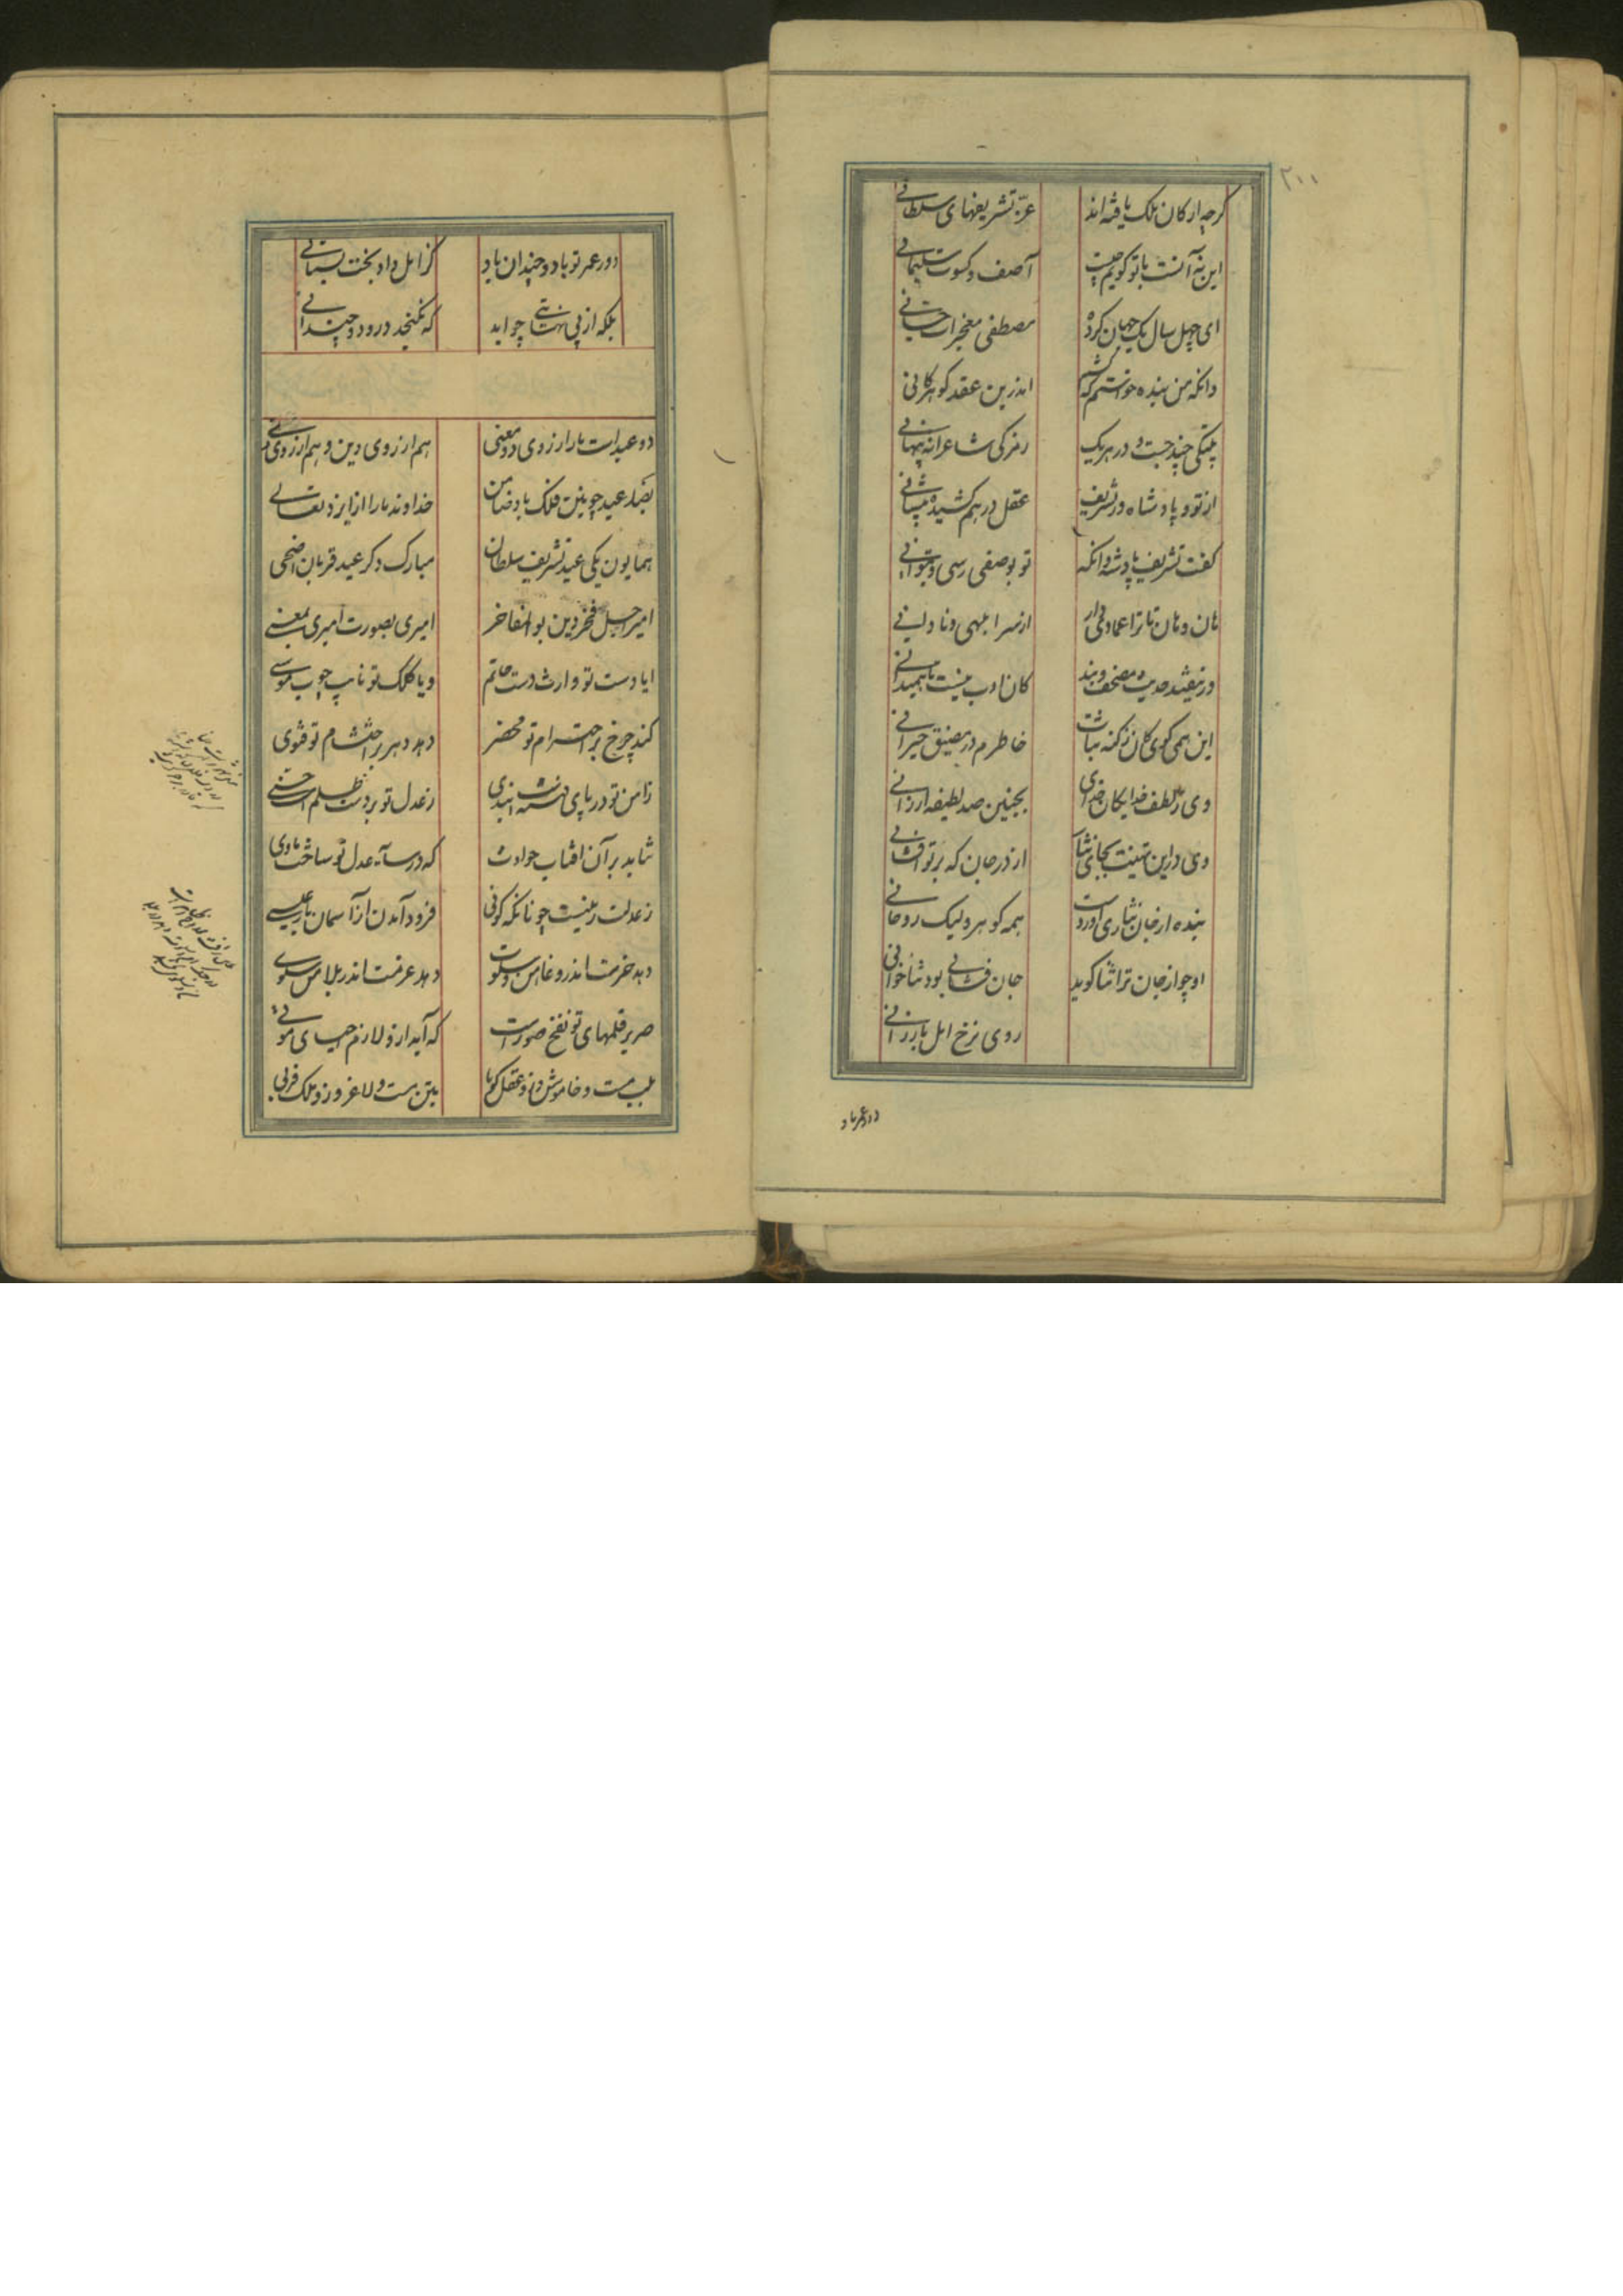 ۲۰۰
گرچه ارکان ملک یافته‌اند عز تشریفهای سلطانی
این نه آنست با تو گویم چیست آصف و کسوت سلیمانی
ای چهل سال یک جهان کرده مصطفی معجزات حسانی
وانکه من بنده خواستم که کشم اندرین عقد گوهر کانی
بیتکی چند جست و در هر یک رمزکی شاعرانه پنهانی
از تو و پادشاه و تشریف عقل درهم کشیده پیشانی
گفت تشریف پادشه وانکه تو بوصفش رسی و بتوانی
هان و هان تا ترا عمادی‌وار از سر ابلهی و نادانی
در نیفتد حدیث مصحف و بند کان ادب نیست تا همیدانی
این همی گوی کای ز کنه ثنات خاطرم در مضیق حیرانی
وی ز لطف خدایگان و خدای بچنین صد لطیفه ارزانی
وی در این تهنیت بجای نثار از در جان که بر تو افشانی
بنده از جان نثاری آوردست همه گوهر ولیک روحانی
او چو از جان ترا ثنا گوید جان فشانی بود ثناخوانی
روی نرخ امل بارزانی
دور عمر باد
دور عمر تو باد و چندان باد کز امل داد بخت بستانی
بلکه از بی نهایتی چو ابد که نگنجد درو دو چندانی
دو عیدست ما را ز روی دو معنی هم از روی دین و هم از روی دنیی
بصد عید چونین فلک باد ضامن خداوند ما را از ایزد تعالی
همایون یکی عید تشریف سلطان مبارک دگر عید قربان اضحی
امیر اجل فخر دین بوالمفاخر امیری بصورت امیری بمعنی
ایا دست تو وارث دست حاتم ویا کلک تو نایب چوب موسی
کند چرخ بر احترام تو محضر دهد دهر بر احتشام تو فتوی
ز امن تو در پای فتنه است بندی ز عدل تو بر دست ظلم است حنی
نتابد بر آن آفتاب حوادث که در سایه عدل تو ساخت ماوی
ز عدلت زمینست چونانکه گوئی فرود آمدن از آسمان باز عیسی
دهد حزمت اندر وغا من و سکوت دهد عزمت اندر بلا من و سلوی
صریر قلمهای تو نفخ صورست که آید ازو لازم احیای موتی
بلب هست و خاموش و زو عقل گویا بتن هست و لاغر و زو ملک فربی